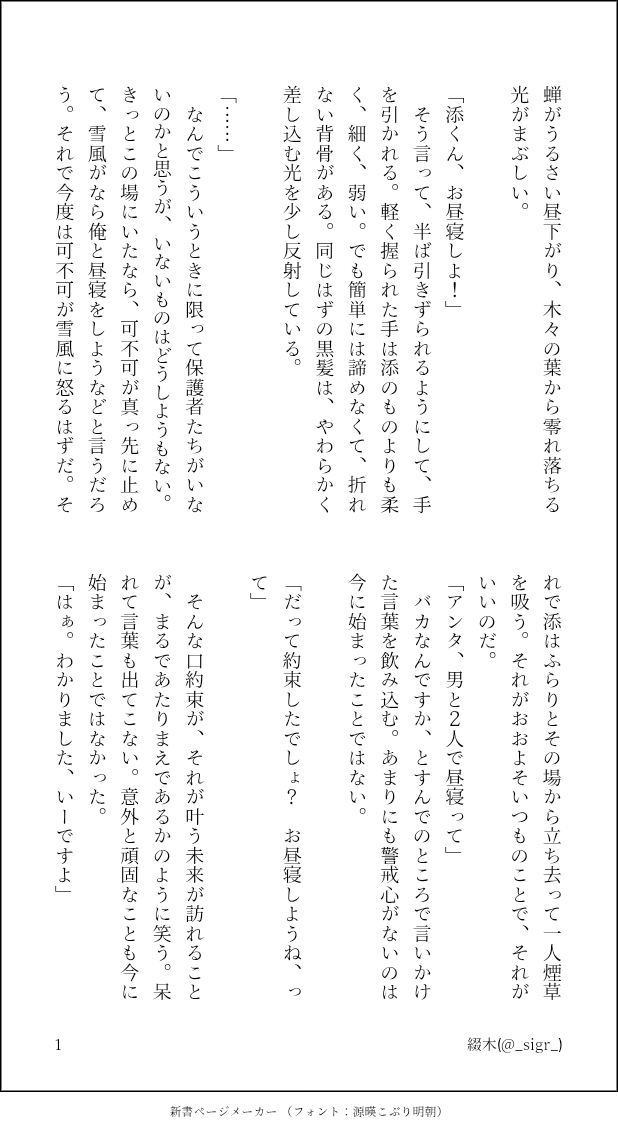 蝉がうるさい昼下がり、木々の葉から零れ落ちる
光がまぶしい。
「添くん、お昼寝しよ！」
そう言って、半ば引きずられるようにして、手
を引かれる。軽く握られた手は添のものよりも柔
く、細く、弱い。でも簡単には諦めなくて、折れ
ない背骨がある。同じはずの黒髪は、やわらかく
差し込む光を少し反射している。
「……」
なんでこういうときに限って保護者たちがいな
いのかと思うが、いないものはどうしようもない。
きっとこの場にいたなら、可不可が真っ先に止め
て、雪風がなら俺と昼寝をしようなどと言うだろ
う。それで今度は可不可が雪風に怒るはずだ。そ
れで添はふらりとその場から立ち去って一人煙草
を吸う。それがおおよそいつものことで、それが
いいのだ。
「アンタ、男と２人で昼寝って」
バカなんですか、とすんでのところで言いかけ
た言葉を飲み込む。あまりにも警戒心がないのは
今に始まったことではない。
「だって約束したでしょ？　お昼寝しようね、っ
て」
そんな口約束が、それが叶う未来が訪れること
が、まるであたりまえであるかのように笑う。呆
れて言葉も出てこない。意外と頑固なことも今に
始まったことではなかった。
「はぁ。わかりました、いーですよ」
1
綴木(@_sigr_)
新書ページメーカー（フォント：源暎こぶり明朝）